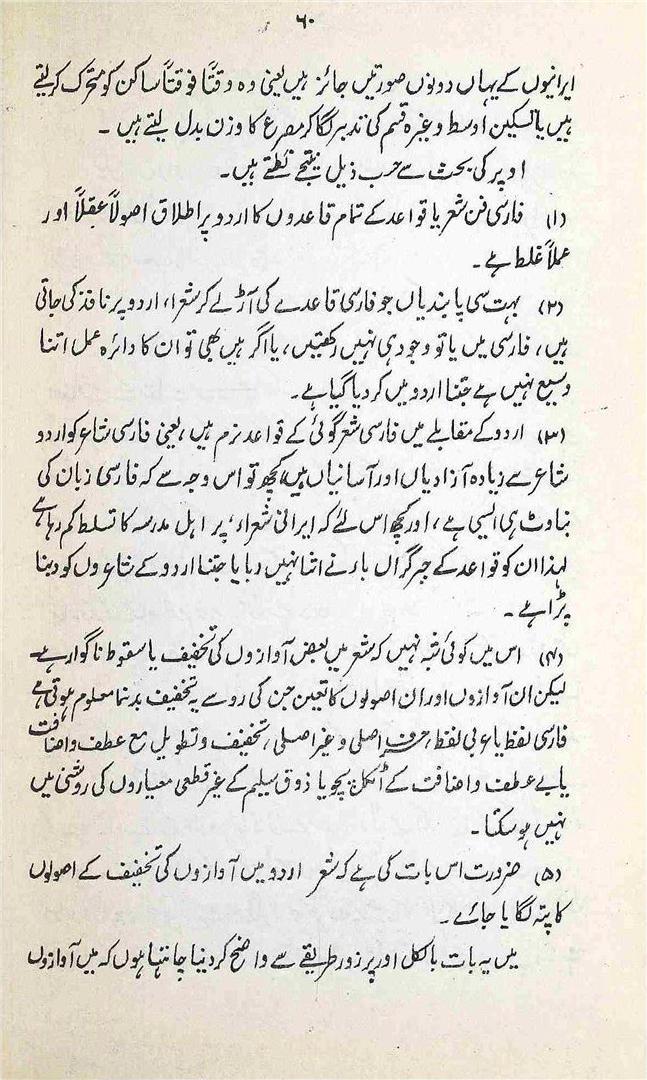 ۶۰
ایرانیوں کے یہاں دونوں صورتیں جائز ہیں یعنی وہ وقتاً فوقتاً ساکن کو متحرک کرلیتے
ہیں یا تسکین اوسط وغیرہ قسم کی تدبیر لگا کر مصرع کا وزن بدل لیتے ہیں ۔
اوپر کی بحث سے حسب ذیل نتیجے نکلتے ہیں۔
(۱) فارسی فن شعر یا قواعد کے تمام قاعدوں کا اردو پر اطلاق اصولاً عقلاً اور
عملاً غلط ہے ۔
(۲) بہت سی پابندیاں جو فارسی قاعدے کی آڑ لے کر شعراء اردو پر نافذ کی جاتی
ہیں، فارسی میں یا تو وجود ہی نہیں رکھتیں، یا اگر ہیں بھی تو ان کا دائرہ عمل اتنا
وسیع نہیں ہے جتنا اردو میں کردیا گیا ہے۔
(۳) اردو کے مقابلے میں فارسی شعر گوئی کے قواعد نرم ہیں، یعنی فارسی شاعر کو اردو
شاعر سے زیادہ آزادیاں اور آسانیاں ہیں، کچھ تو اس وجہ سے کہ فارسی زبان کی
بناوٹ ہی ایسی ہے، اور کچھ اس لئے کہ ایرانی شعراء پر اہل مدرسہ کا تسلط کم رہا ہے
لہذا ان کو قواعد کے جبر گراں بار نے اتنا نہیں دبایا جتنا اردو کے شاعروں کو دبنا
پڑا ہے ۔
(۴) اس میں کوئی شبہ نہیں کہ شعر میں بعض آوازوں کی تخفیف یا سقوط ناگوار ہے۔
لیکن ان آوازوں اور ان اصولوں کا تعین جن کی رو سے یہ تخفیف بدنما معلوم ہوتی ہے
فارسی لفظ یا عربی لفظ، حرف اصلی و غیر اصلی، تخفیف و تطویل مع عطف و اضافت
یا بے عطف و اضافت کے اٹکل پچو یا ذوق سلیم کے غیر قطعی معیاروں کی روشنی میں
نہیں ہو سکتا۔
(۵) ضرورت اس بات کی ہے کہ شعر اردو میں آوازوں کی تخفیف کے اصولوں
کا پتہ لگایا جائے۔
میں یہ بات بالکل اور پرزور طریقے سے واضح کر دینا چاہتا ہوں کہ میں آوازوں